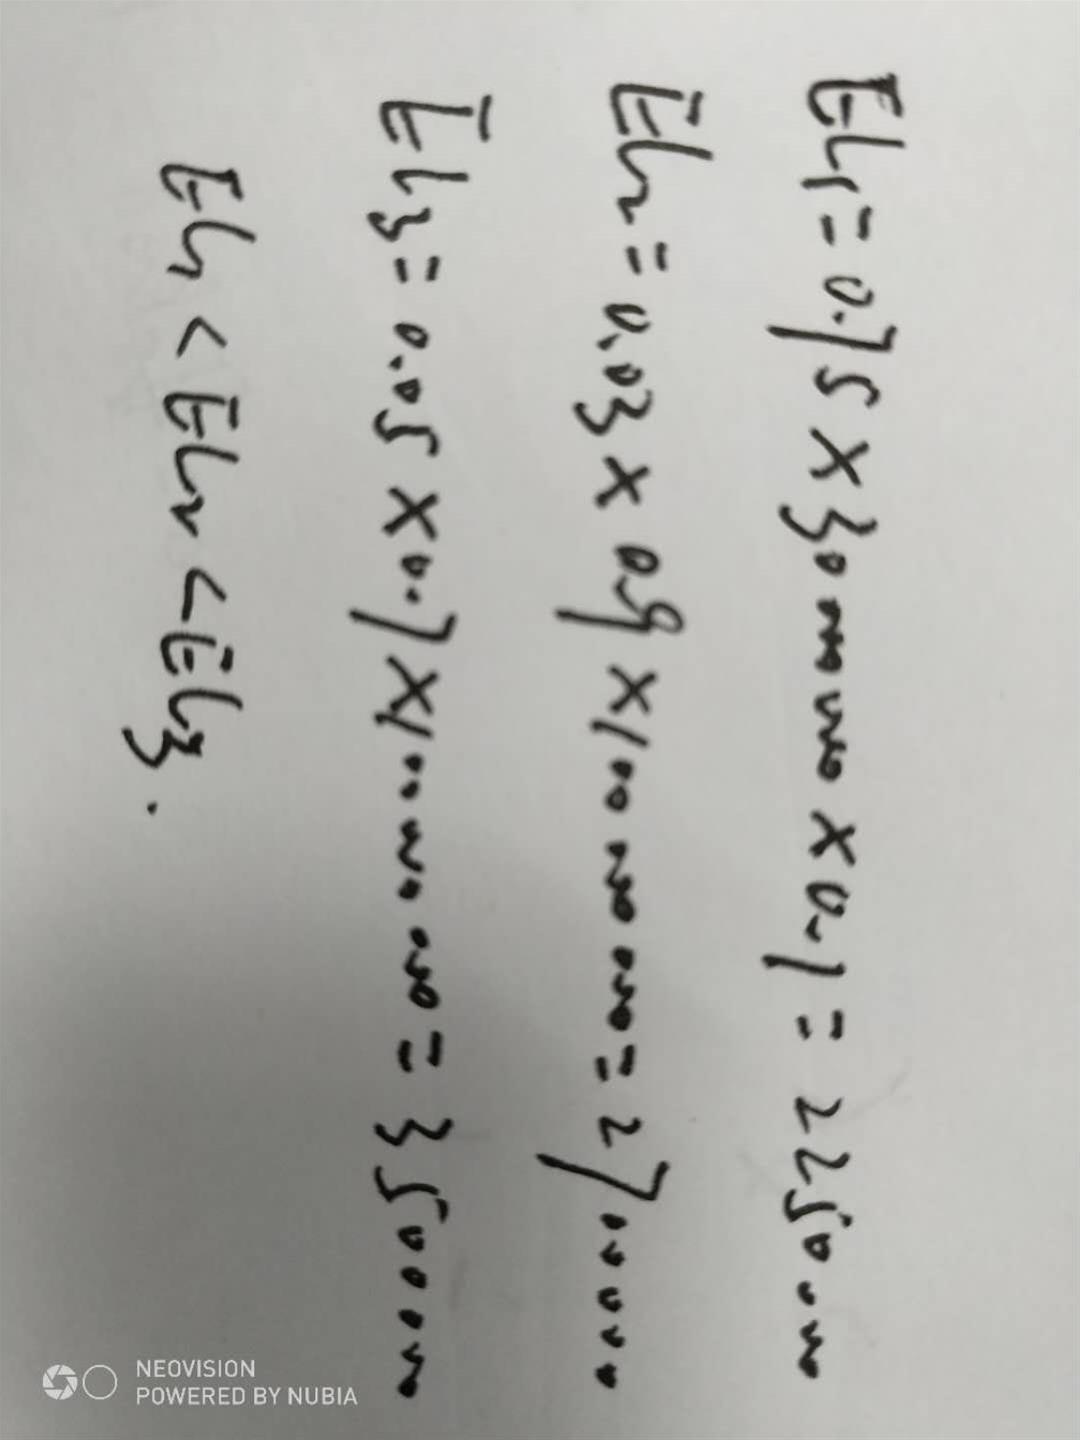 EL1=0.75×30000000×0.1=2250000
EL2=0.03×0.9×100000000=2700000
EL3=0.05×0.7×100000000=3500000
EL1<EL2<EL3.
NEOVISION
POWERED BY NUBIA